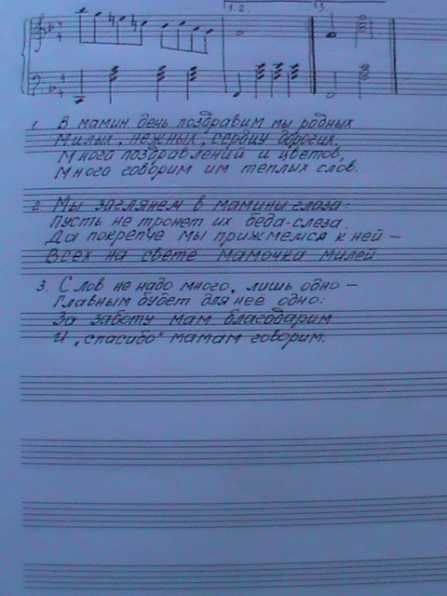 1.2. 3.
1. В мамин день поздравим мы родных
Милых, нежных, сердцу дорогих,
Много поздравлений и цветов,
Много говорим им теплых слов.
2. Мы заглянем в мамины глаза:
Пусть не тронет их беда-слеза.
Да покрепче мы прижмемся к ней –
Всех на свете мамочка милей.
3. Слов не надо много, лишь одно –
Главным будет для нее одно:
За заботу мам благодарим
И „спасибо" мамам говорим.